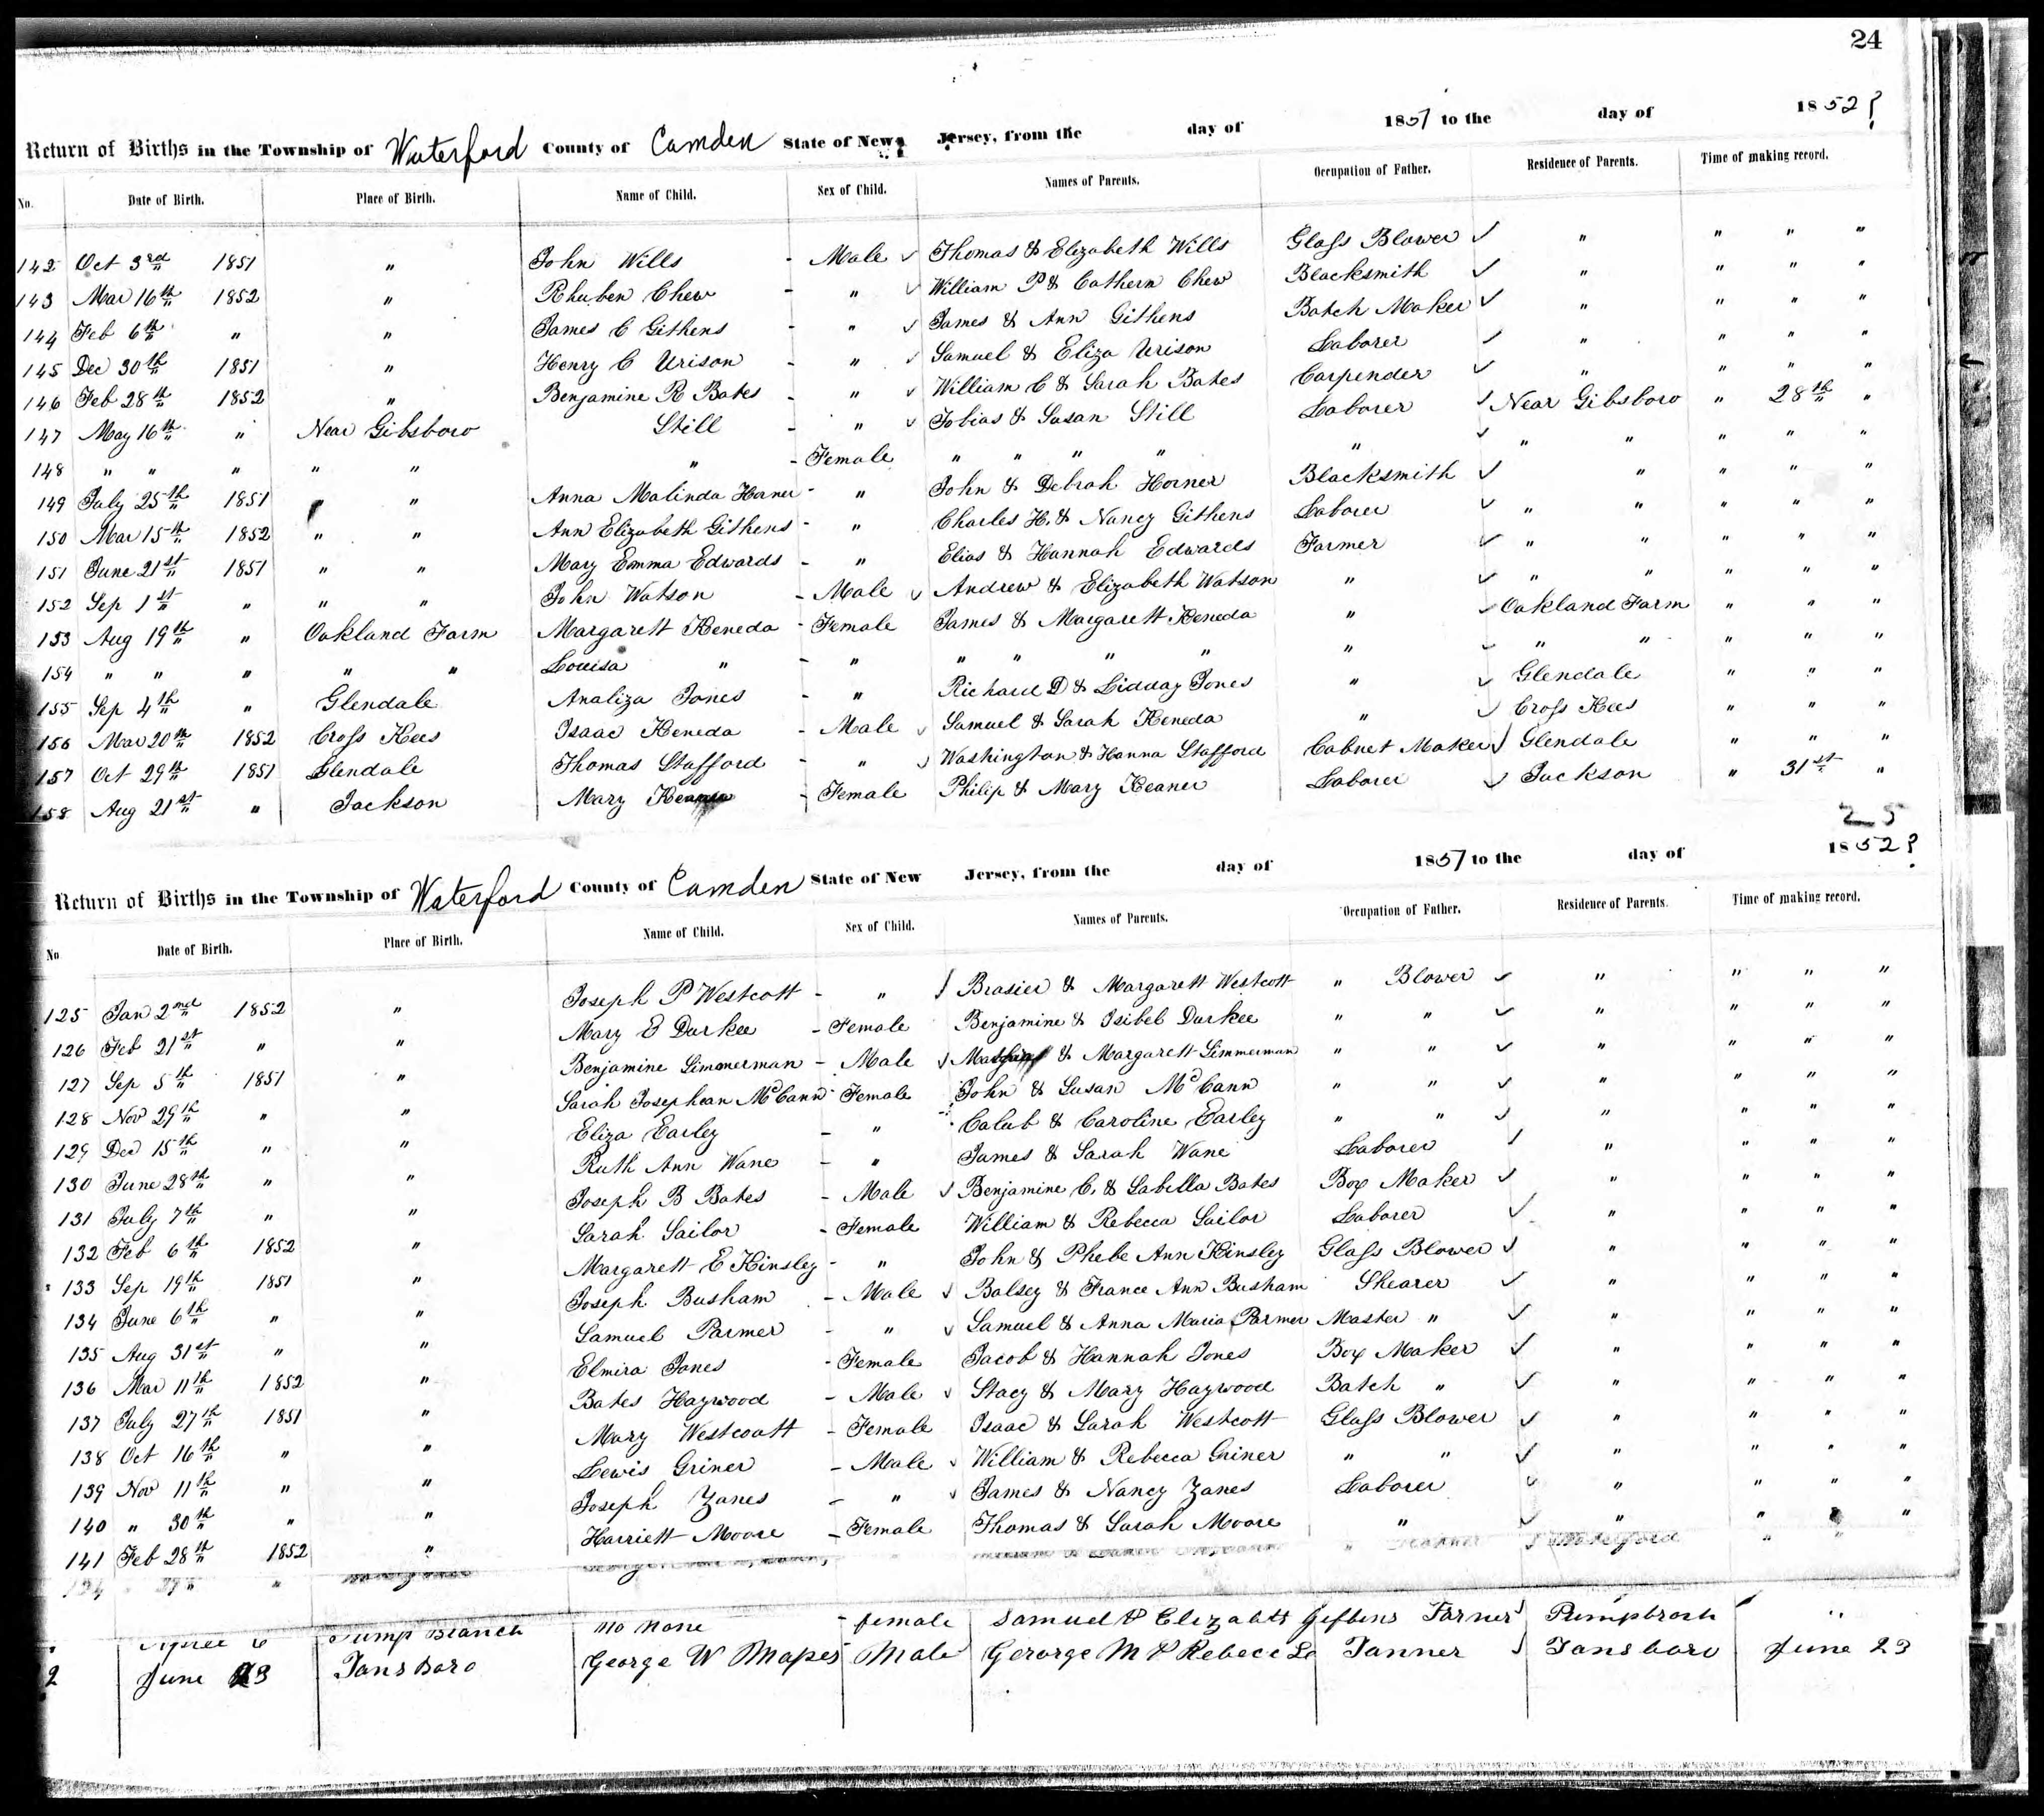 24
Return of Births in the Township of Waterford County of Camden State of New Jersey, from the day of 1851 to the day of 1852?
No. Date of Birth. Place of Birth. Name of Child. Sex of Child. Names of Parents. Occupation of Father. Residence of Parents. Time of making record.
142 Oct 3rd 1851 " John Wills - Male ✓ Thomas & Elizabeth Wills Glass Blower ✓ " " " "
143 Mar 16th 1852 " Rhuben Chew - " ✓ William P & Cathern Chew Blacksmith ✓ " " " "
144 Feb 6th " " James C Githens - " ✓ James & Ann Githens Batch Maker ✓ " " " "
145 Dec 30th 1851 " Henry C Urison - " ✓ Samuel & Eliza Urison Laborer ✓ " " " "
146 Feb 28th 1852 " Benjamine R Bates - " ✓ William C & Sarah Bates Carpender ✓ " " " "
147 May 16th " Near Gibsboro Still - " ✓ Tobias & Susan Still Laborer ✓ Near Gibsboro " 28th "
148 " " " " " " - Female " " " " " ✓ " " " " "
149 July 25th 1851 " " Anna Malinda Horner - " John & Debrah Horner Blacksmith ✓ " " " "
150 Mar 15th 1852 " " Ann Elizabeth Githens - " Charles H. & Nancy Githens Laborer ✓ " " " " "
151 June 21st 1851 " " Mary Emma Edwards - " Elias & Hannah Edwards Farmer ✓ " " " " "
152 Sep 1st " " " John Watson - Male ✓ Andrew & Elizabeth Watson " ✓ " " " " "
153 Aug 19th " Oakland Farm Margarett Keneda - Female James & Margarett Keneda " ✓ Oakland Farm " " "
154 " " " " " Louisa " - " " " " " " ✓ " " " " "
155 Sep 4th " Glendale Analiza Jones - " Richard D & Lidday Jones " ✓ Glendale " " "
156 Mar 20th 1852 Cross Kees Isaac Keneda - Male ✓ Samuel & Sarah Keneda " ✓ Cross Kees " " "
157 Oct 29th 1851 Glendale Thomas Stafford - " ✓ Washington & Hanna Stafford Cabnet Maker ✓ Glendale " " "
158 Aug 21st " Jackson Mary - Female Philip & Mary Keaner Laborer ✓ Jackson " 31st "
25
Return of Births in the Township of Waterford County of Camden State of New Jersey, from the day of 1851 to the day of 1852?
No Date of Birth. Place of Birth. Name of Child. Sex of Child. Names of Parents. Occupation of Father. Residence of Parents. Time of making record.
125 Jan 2nd 1852 " Joseph P Westcott - " ✓ Brasier & Margarett Westcott " Blower ✓ " " " "
126 Feb 21st " " Mary E Durkee - Female Benjamine & Isibel Durkee " " ✓ " " " "
127 Sep 5th 1851 " Benjamine Simmerman - Male ✓ & Margarett Simmerman " " ✓ " " " "
128 Nov 29th " " Sarah Josephean McCann - Female John & Susan McCann " " ✓ " " " "
129 Dec 15th " " Eliza Earley - " Calub & Caroline Earley " " ✓ " " " "
130 June 28th " " Ruth Ann Wane - " James & Sarah Wane Laborer ✓ " " " "
131 July 7th " " Joseph B Bates - Male ✓ Benjamine C. & Sabella Bates Box Maker ✓ " " " "
132 Feb 6th 1852 " Sarah Sailor - Female William & Rebecca Sailor Laborer ✓ " " " "
133 Sep 19th 1851 " Margarett E Kinsley - " John & Phebe Ann Kinsley Glass Blower ✓ " " " "
134 June 6th " " Joseph Busham - Male ✓ Balsey & France Ann Busham Shearer ✓ " " " "
135 Aug 31st " " Samuel Parmer - " ✓ Samuel & Anna Maria Parmer Master " ✓ " " " "
136 Mar 11th 1852 " Elmira Jones - Female Jacob & Hannah Jones Box Maker ✓ " " " "
137 July 27th 1851 " Bates Haywood - Male ✓ Stacy & Mary Haywood Batch " ✓ " " " "
138 Oct 16th " " Mary Westcoatt - Female Isaac & Sarah Westcott Glass Blower ✓ " " " "
139 Nov 11th " " Lewis Griner - Male ✓ William & Rebecca Griner " " ✓ " " " "
140 " 30th " " Joseph Zanes - " ✓ James & Nancy Zanes Laborer ✓ " " " "
141 Feb 28th 1852 " Harriett Moore - Female Thomas & Sarah Moore " ✓ " " " "
Pump Branch no name - female Samuel & Elizabeth Farner ✓ "
2 June 23 Tansboro George W Mapes Male George M & Tanner ✓ Tansboro June 23